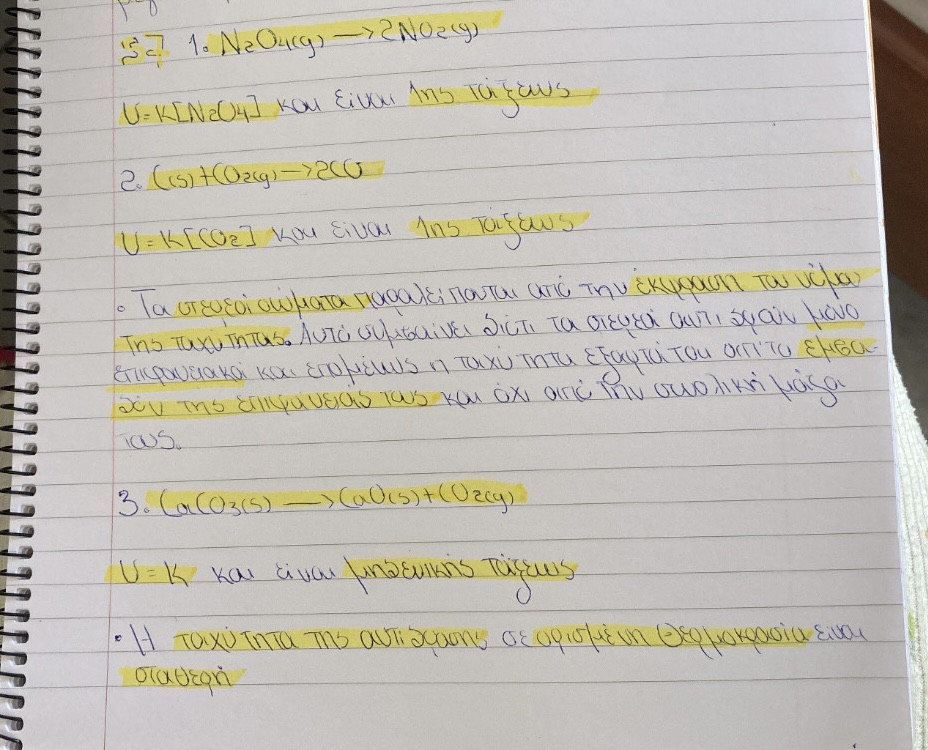 57 1. N2O4(g) → 2NO2(g)
U=K[N2O4] και είναι 1ης τάξεως
2. C(s)+CO2(g) → 2CO
U=K[CO2] και είναι 1ης τάξεως
• Τα στερεά σώματα παραλείπονται από την έκφραση του νόμου
της ταχύτητας. Αυτό συμβαίνει διότι τα στερεά αντιδρούν μόνο
επιφανειακά και επομένως η ταχύτητα εξαρτάται από το εμβα-
δόν της επιφάνειάς τους και όχι από την συνολική μάζα
τους.
3. CaCO3(s) → CaO(s)+CO2(g)
U=K και είναι μηδενικής τάξεως
• Η ταχύτητα της αντίδρασης σε ορισμένη θερμοκρασία είναι
σταθερή